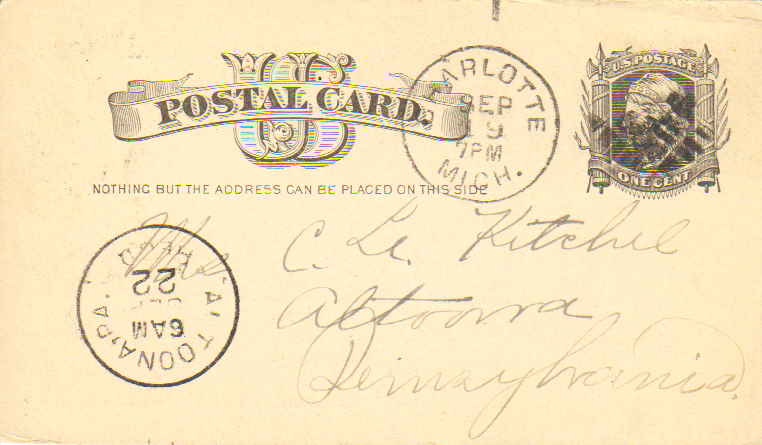 U.S. POSTAGE
US
POSTAL CARD.
ARLOTTE
SEP
19
7PM
MICH.
ONE CENT
NOTHING BUT THE ADDRESS CAN BE PLACED ON THIS SIDE
Mrs C. Le. Kitchel
Altoona
Pennsylvania.
ALTOONA, PA.
22
6AM